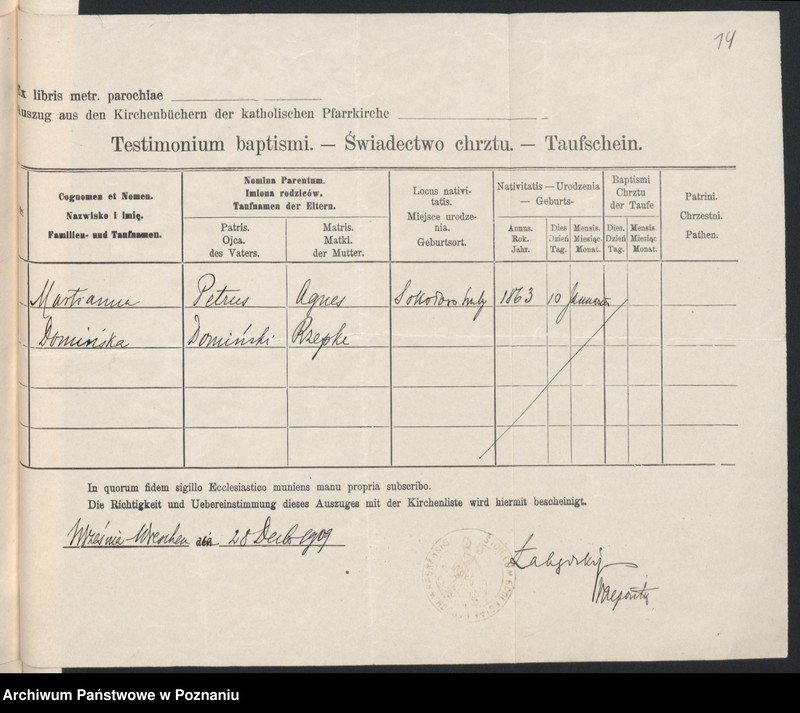 14
Ex libris metr. parochiae
Auszug aus den Kirchenbüchern der katholischen Pfarrkirche
Testimonium baptismi. — Świadectwo chrztu. — Taufschein.
Cognomen et Nomen.
Nazwisko i imię.
Familien- und Taufnamen.
Nomina Parentum.
Imiona rodziców.
Taufnamen der Eltern.
Patris.
Ojca.
des Vaters.
Matris.
Matki.
der Mutter.
Locus nativi-
tatis.
Miejsce urodze-
nia.
Geburtsort.
Nativitatis — Urodzenia
— Geburts-
Annus.
Rok.
Jahr.
Dies
Dzień
Tag.
Mensis.
Miesiąc.
Monat.
Baptismi
Chrztu
der Taufe
Dies.
Dzień
Tag.
Mensis
Miesiąc
Monat.
Patrini.
Chrzestni.
Pathen.
Martianna Petrus Agnes 1863 10 Januarii
Domińska Domiński Rzepke
In quorum fidem sigillo Ecclesiastico muniens manu propria subscribo.
Die Richtigkeit und Uebereinstimmung dieses Auszuges mit der Kirchenliste wird hiermit bescheinigt.
Września-Wreschen den 28 Decb 1909
Archiwum Państwowe w Poznaniu